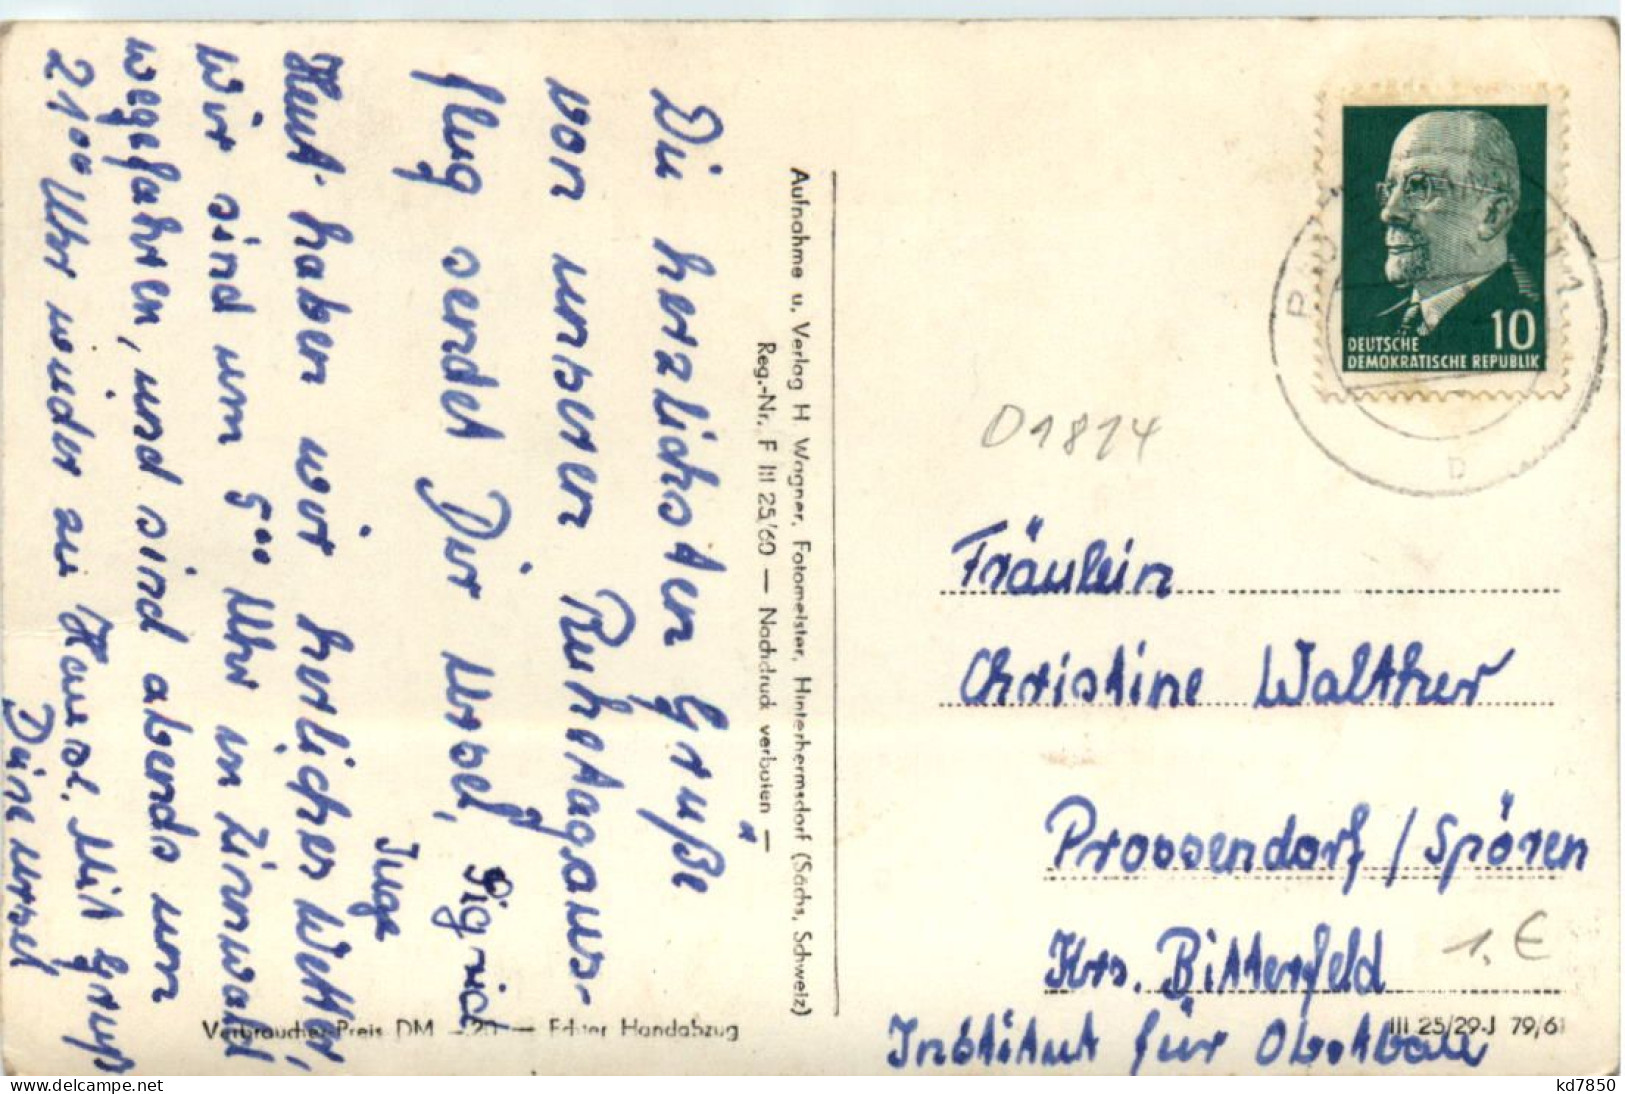 Die herzlichsten Grüße
von unseren Ruhetagaus-
flug sendet Dir Ursel,
Sigrid
Inge
Heut haben wir herlicher Wetter,
Wir sind um 5⁰⁰ Uhr in Zinnwald
weggefahren, und sind abends um
21⁰⁰ Uhr wieder zu Hause. Mit Gruß
Deine Ursel
Aufnahme u. Verlag H. Wagner, Fotomeister, Hinterhermsdorf (Sächs. Schweiz)
Reg.-Nr. F III 25/60 — Nachdruck verboten —
Verbraucher-Preis DM -.20 — Echter Handabzug
10
DEUTSCHE
DEMOKRATISCHE REPUBLIK
D
01814
Fräulein
Christine Walther
Prossendorf / Spören
Krs. Bitterfeld
1.€
Institut für Obstbau
III 25/29-J 79/61
www.delcampe.net
kd7850